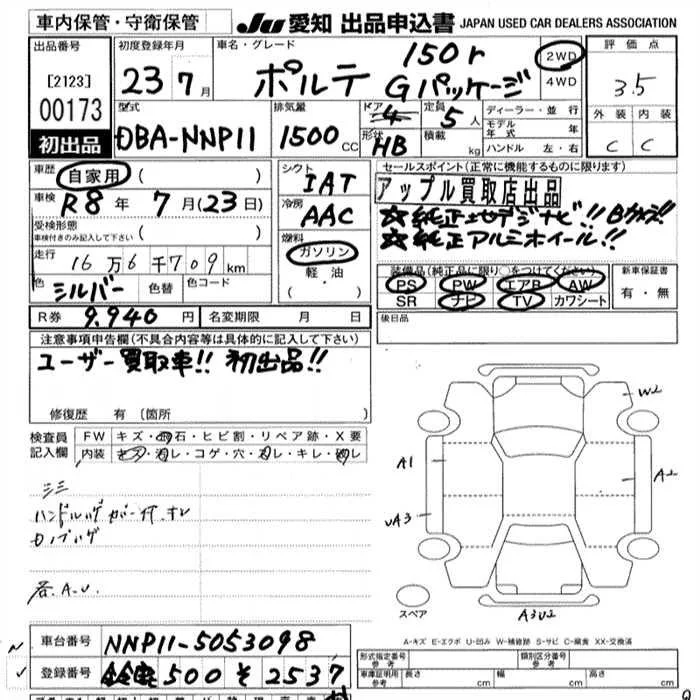 車内保管・守衛保管
JU 愛知 出品申込書 JAPAN USED CAR DEALERS ASSOCIATION
出品番号 初度登録年月 車名・グレード 評価点
[2123] 23年 7月 ポルテ 150r Gパッケージ 2WD 4WD 3.5
00173 型式 排気量 ドア 4 定員 5人 ディーラー・並行 外装 内装
初出品 DBA-NNP11 1500cc 形状 HB 積載 kg モデル年式 年 ハンドル 左・右 C C
車歴 自家用 ( ) シフト IAT セールスポイント(正常に機能するものに限ります)
車検 R8年 7月(23日) 冷房 AAC アップル買取店出品
受検形態 車検付きのみ記入して下さい ( ) ☆純正 デジナビ!! Bカメラ!!
☆純正アルミホイール!!
走行 16万6千709km 燃料 ガソリン 軽油 ( )
装備品(純正品に限り○をつけてください) 新車保証書
PS PW エアB AW 有・無
SR ナビ TV カワシート
色 シルバー 色替 色コード
R券 9,940円 名変期限 月 日 後日品
注意事項申告欄(不具合内容等は具体的に記入して下さい)
ユーザー買取車!! 初出品!!
修復歴 有 (箇所
検査員記入欄 FW キズ・飛石・ヒビ割・リペア跡・X要
内装 キズ・汚レ・コゲ・穴・スレ・キレ・
三ミ
W2
A1
A2
UA3
A3U2
各.A.U
スペア
A-キズ E-エクボ U-凹み W-補修跡 S-サビ C-腐食 XX-交換済
車台番号 NNP11-5053098
登録番号 500 そ 2537
形式指定番号 参考 類別区分番号 参考
車庫証明用 参考 長さ cm 幅 cm 高さ cm